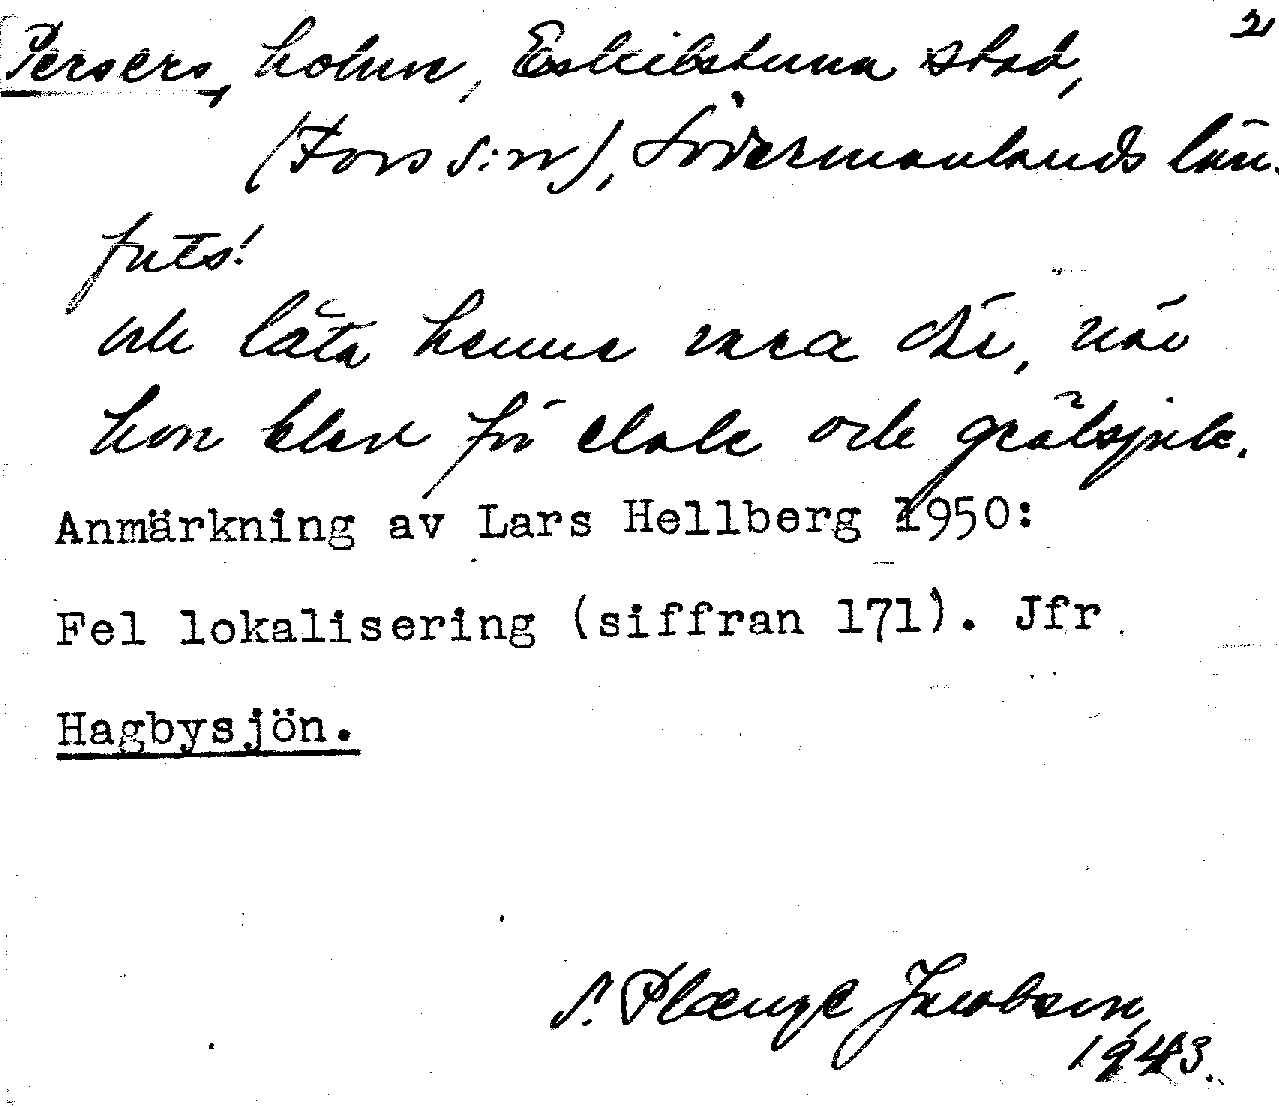 2
Persers, holme, Eskilstuna stad,
(Fors s:n), Södermanlands län.
forts!
och låta henne vara där, när
hon blev för elak och grälsjuk.
Anmärkning av Lars Hellberg 1950:
Fel lokalisering (siffran 171). Jfr
Hagbysjön.
S. Plænge Jacobson,
1943.